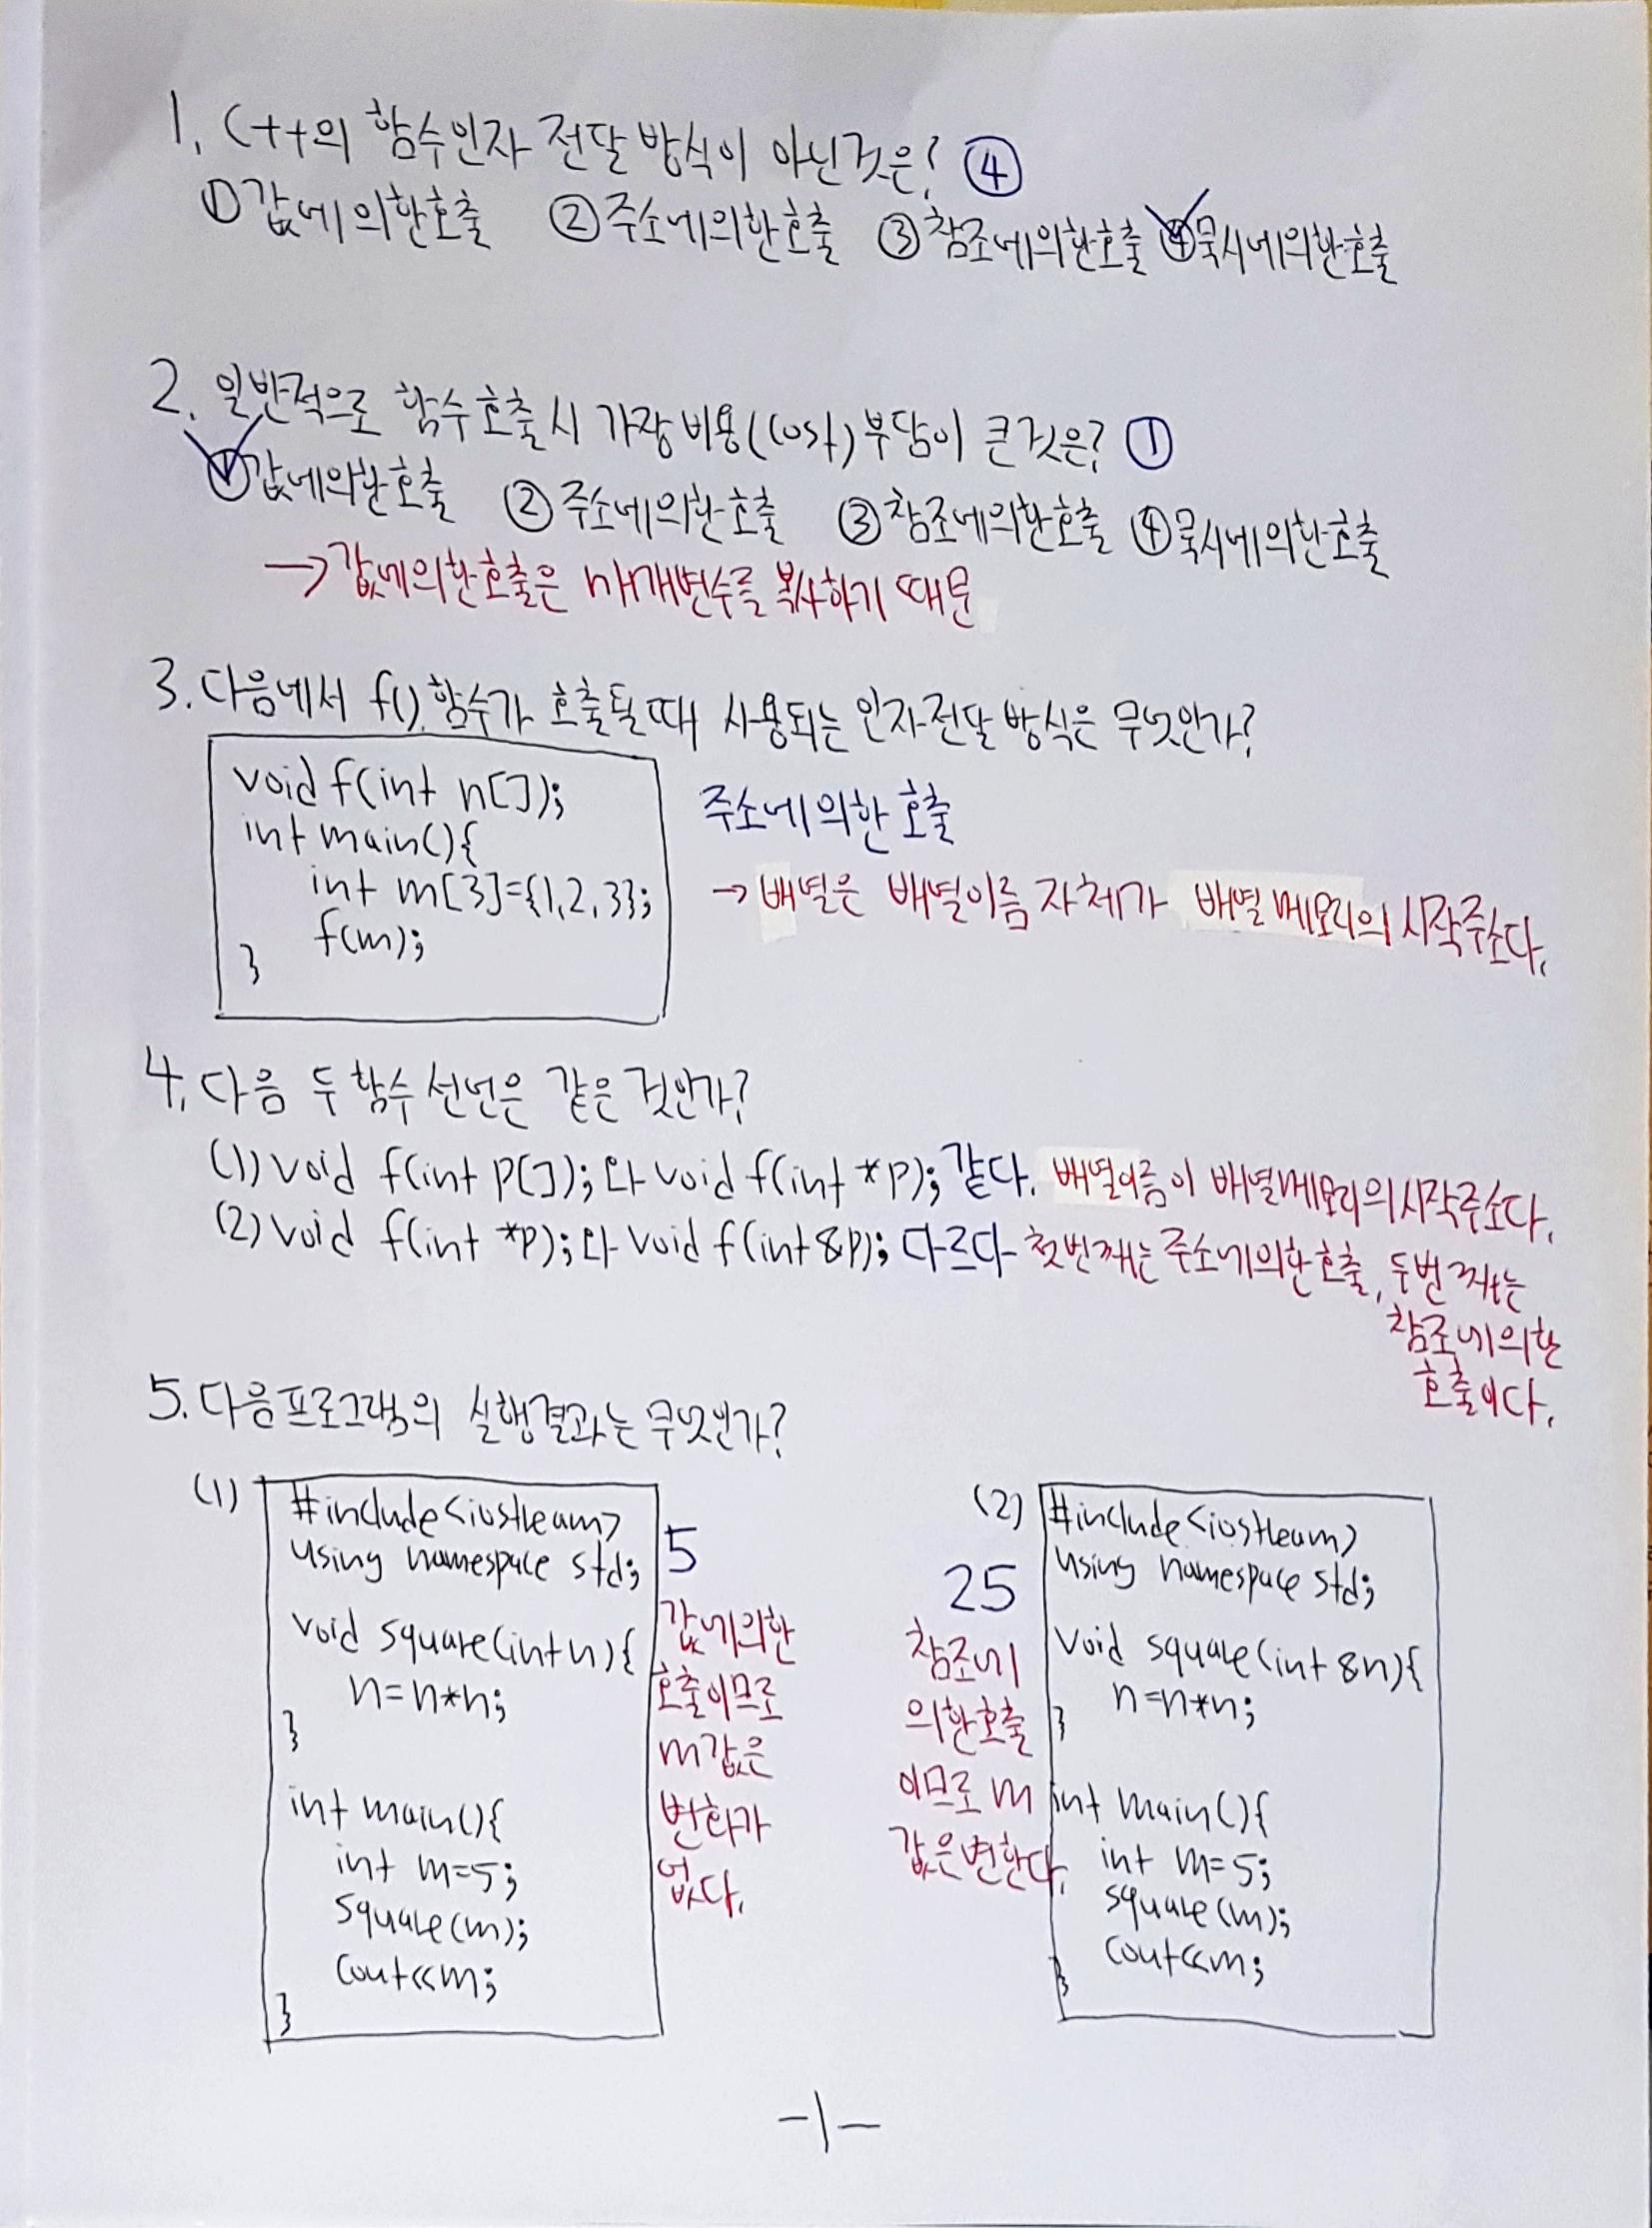 1. C++의 함수인자 전달 방식이 아닌것은? ④
①값에의한호출 ②주소에의한호출 ③참조에의한호출 ④묵시에의한호출
2. 일반적으로 함수호출시 가장 비용(cost)부담이 큰것은? ①
①값에의한호출 ②주소에의한호출 ③참조에의한호출 ④묵시에의한호출
→값에의한호출은 매개변수를 복사하기 때문
3. 다음에서 f() 함수가 호출될때 사용되는 인자전달 방식은 무엇인가?
void f(int n[]);
int main(){
int m[3]={1,2,3};
f(m);
}
주소에의한 호출
→배열은 배열이름 자체가 배열메모리의 시작주소다.
4. 다음 두 함수 선언은 같은 것인가?
(1) void f(int p[]);와 void f(int *p); 같다. 배열이름이 배열메모리의시작주소다.
(2) void f(int *p);와 void f(int &p); 다르다 첫번째는 주소에의한호출, 두번째는
참조에의한
호출이다.
5. 다음프로그램의 실행결과는 무엇인가?
(1)
#include<iostream>
using namespace std;
void square(int n){
n=n*n;
}
int main(){
int m=5;
square(m);
cout<<m;
}
5
값에의한
호출이므로
m값은
변화가
없다.
(2)
#include<iostream>
using namespace std;
void square(int &n){
n=n*n;
}
int main(){
int m=5;
square(m);
cout<<m;
}
25
참조에
의한호출
이므로 m
값은변한다.
-1-